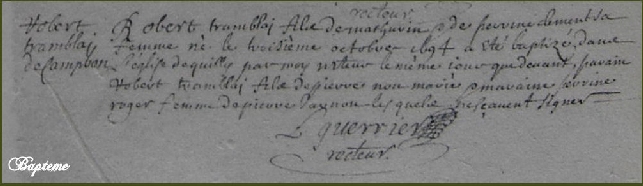 recteur
Robert
tramblaj
de Campbon
Robert tramblaj fils de mathurin & de perrine clement sa
femme né le troisieme octobre 1694 a été baptizé dans
l'eglise de quilly par moy recteur le même iour que devant, parain
Robert tramblaj fils de pierre non marié & maraine perrine
roger femme de pierre les quels ne sçavent signer
L guerrier
recteur
Bapteme